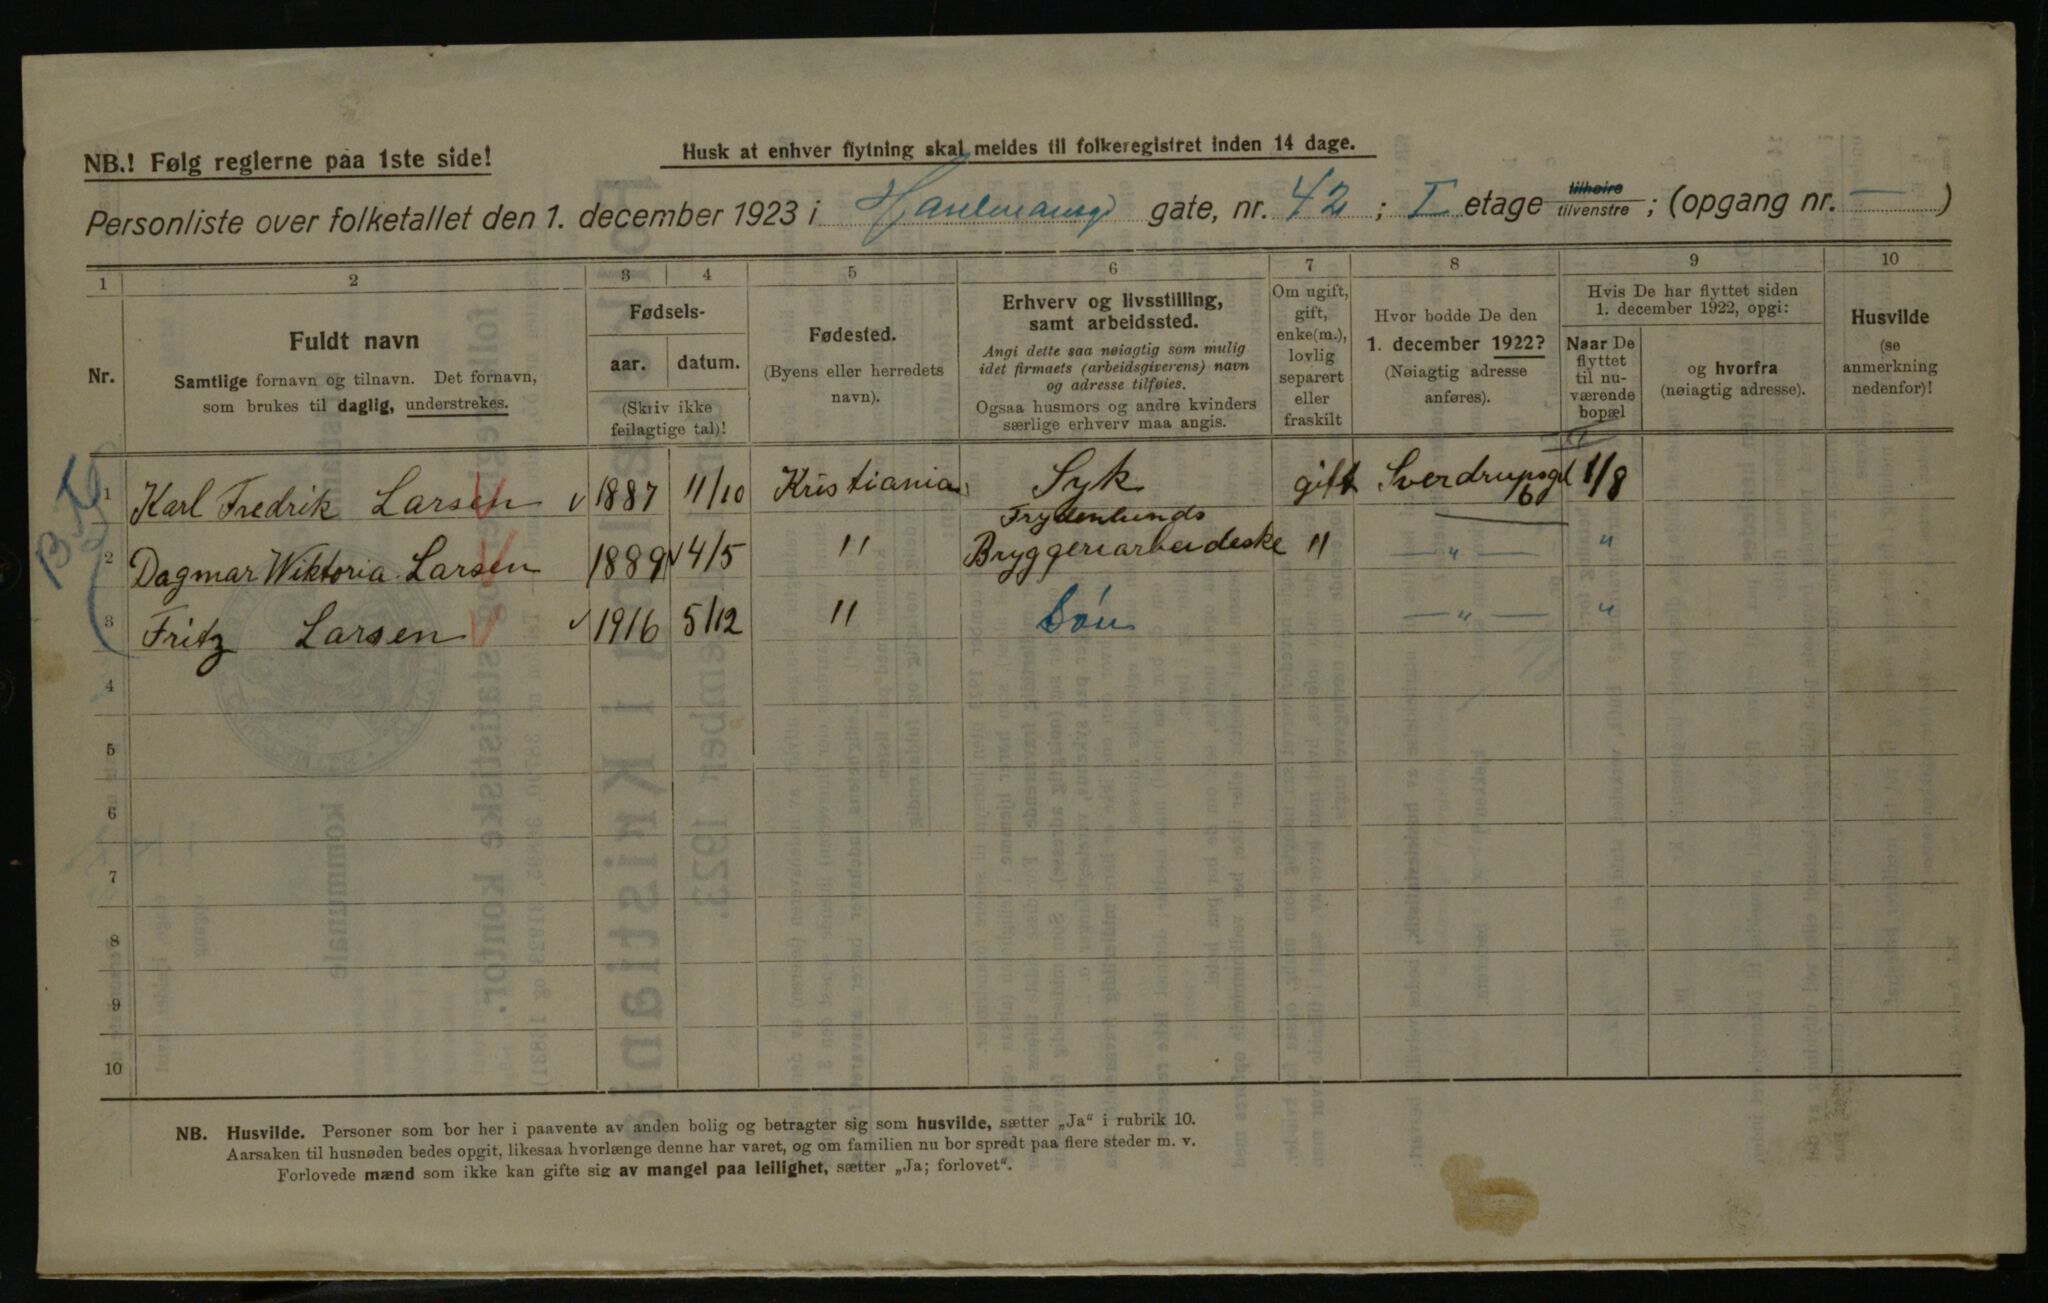 NB.! Følg reglerne paa 1ste side!
Husk at enhver flytning skal meldes til folkeregistret inden 14 dage.
Personliste over folketallet den 1. december 1923 i gate, nr. 42 ; I etage tilhøire tilvenstre ; (opgang nr. — )
1 2 3 4 5 6 7 8 9 10
Nr.
Fuldt navn
Samtlige fornavn og tilnavn. Det fornavn,
som brukes til daglig, understrekes.
Fødsels-
aar. datum.
(Skriv ikke
feilagtige tal)!
Fødested.
(Byens eller herredets
navn).
Erhverv og livsstilling,
samt arbeidssted.
Angi dette saa nøiagtig som mulig
idet firmaets (arbeidsgiverens) navn
og adresse tilføies.
Ogsaa husmors og andre kvinders
særlige erhverv maa angis.
Om ugift,
gift,
enke(m.),
lovlig
separert
eller
fraskilt
Hvor bodde De den
1. december 1922?
(Nøiagtig adresse
anføres).
Hvis De har flyttet siden
1. december 1922, opgi:
Naar De
flyttet
til nu-
værende
bopæl
og hvorfra
(nøiagtig adresse).
Husvilde
(se
anmerkning
nedenfor)!
1 Karl Fredrik Larsen 1887 11/10 Kristiania Syk gift Sverdrupsgt 6 1/8
2 Dagmar Wiktoria Larsen 1889 14/5 " Frydenlunds Bryggeriarbeideske " — " — "
3 Fritz Larsen 1916 5/12 " Søn — " — "
4
5
6
7
8
9
10
NB. Husvilde. Personer som bor her i paavente av anden bolig og betragter sig som husvilde, sætter „Ja“ i rubrik 10.
Aarsaken til husnøden bedes opgit, likesaa hvorlænge denne har varet, og om familien nu bor spredt paa flere steder m. v.
Forlovede mænd som ikke kan gifte sig av mangel paa leilighet, sætter „Ja; forlovet“.